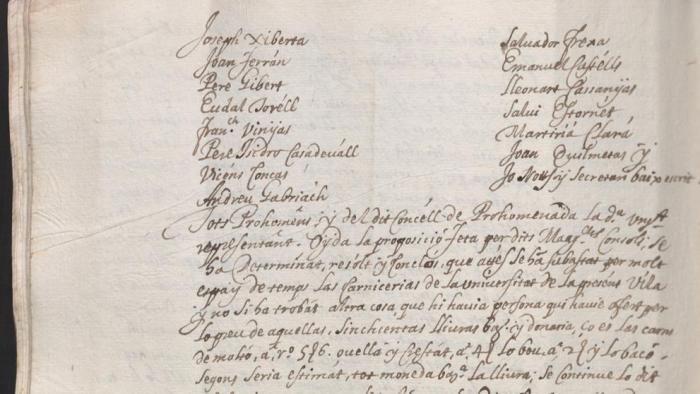 Joseph Xiberta
Joan Ferrán
Pere Gibert
Eudal Toréll
Fran.ch Vinyas
Pere Isidro Casadeváll
Vicéns Concas
Andreu Gabriách
Salvador Frexa
Emanuel Castélls
Lleonart Cassanyas
Salvi Estornet
Martiriá Clará
Joan Quilmetas y
Jo Nott.i y Secretari baix escrit
Tots Prohomens, y del dit Concéll de Prohomenada la d.a Un.st
representant. Oyda la proposició feta per dits Mag.chs Consols, se
ha determinat, resólt y conclos, que se ha subastat per molt
espay de temps las Carnicerias de la Universitat de la present Vila
y no si ha trobat altra cosa que hi havia persona que havie ofert per
lo preu de aquellas, sinchcentas lliuras y donaria, ço es las carns
de moltó, a r.o 5ß6. ovella y Crestat, a 4ß lo bou a 2ß y lo bacó
segons seria estimat, tot moneda la lliura; se continue lo dit